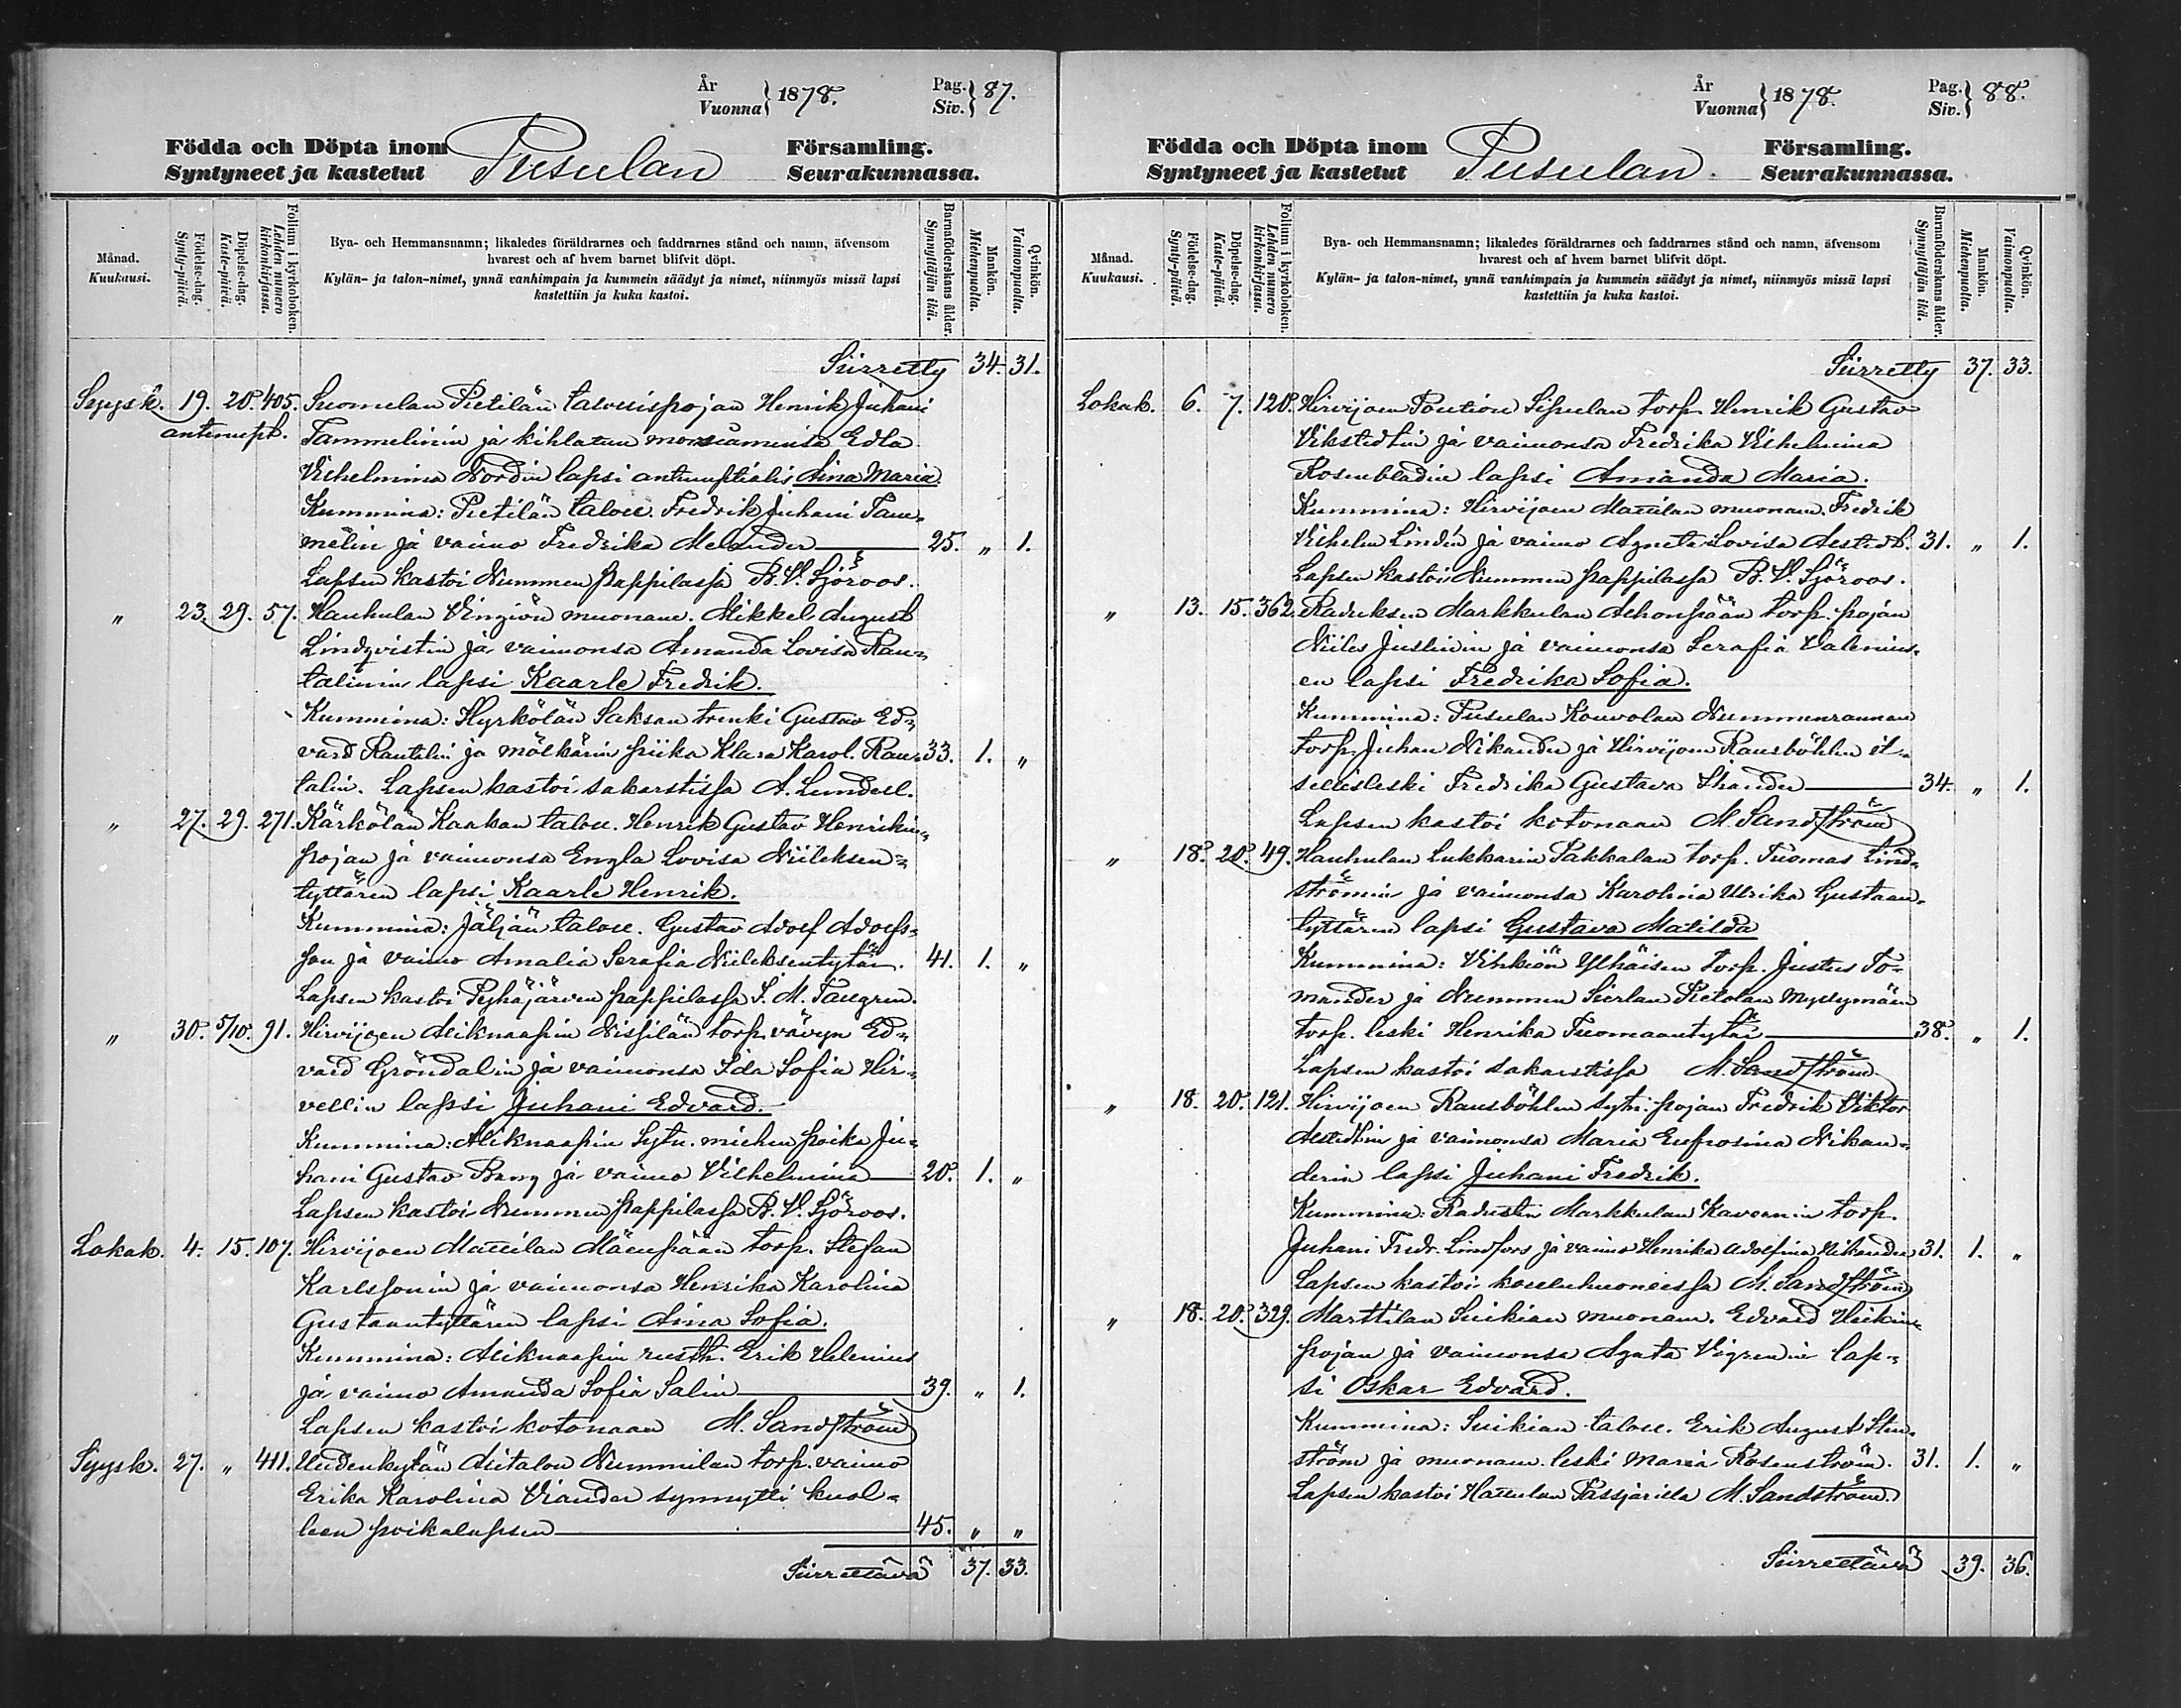 År
Vuonna } 1878.
Pag.
Siv. } 87.
Födda och Döpta inom
Syntyneet ja kastetut
Pusulan
Församling.
Seurakunnassa.
Månad.
Kuukausi.
Födelse-dag.
Synty-päivä.
Döpelse-dag.
Kaste-päivä.
Folium i kyrkoboken.
Lehden numero
kirkonkirjassa.
Bya- och Hemmansnamn; likaledes föräldrarnes och faddrarnes stånd och namn, äfvensom
hvarest och af hvem barnet blifvit döpt.
Kylän- ja talon-nimet, ynnä vanhimpain ja kummein säädyt ja nimet, niinmyös missä lapsi
kastettiin ja kuka kastoi.
Barnaföderskans ålder.
Synnyttäjän ikä.
Mankön.
Miehenpuolta.
Qvinkön.
Vaimonpuolta.
Siirretty 34. 31.
Syysk. 19. 20. 405. Suomelan Pietilän talollispojan Henrik Juhani
antenupt. Tammelinin ja kihlatun morsiamensa Edla
Vilhelmina Nordin lapsi antenuptialis Aina Maria
Kummina: Pietilän taloll. Fredrik Juhani Tam-
melin ja vaimo Fredrika Melander 25. " 1.
Lapsen kastoi Nummen pappilassa B. V. Sjöroos.
" 23. 29. 57. Hauhulan Vingiön muonam. Mikkel August
Lindqvistin ja vaimonsa Amanda Lovisa Rau-
talinin lapsi Kaarle Fredrik.
Kummina: Hyrkölän Saksan trenki Gustav Ed-
vard Rautalin ja mölkärin piika Klara Karol. Rau- 33. 1. "
talin. Lapsen kastoi sakarstissa A. Lundell.
" 27. 29. 271. Kärkölän Kaakan taloll. Henrik Gustav Henrikin-
pojan ja vaimonsa Engla Lovisa Niileksen-
tyttären lapsi Kaarle Henrik.
Kummina: Jäljän taloll. Gustav Adolf Adolfs-
son ja vaimo Amalia Serafia Niileksentytär. 41. 1. "
Lapsen kastoi Pyhäjärven pappilassa S. M. Taugren.
" 30. 5/10. 91. Hirvijoen Aliknaapin Nissilän torp. vävyn Ed-
vard Gröndalin ja vaimonsa Ida Sofia Hir-
vellin lapsi Juhani Edvard.
Kummina: Aliknaapin Sytn. miehen poika Ju-
hani Gustav Bang ja vaimo Vilhelmina 20. 1. "
Lapsen kastoi Nummen pappilassa B. V. Sjöroos.
Lokak. 4. 15. 107. Hirvijoen Mattilan Mäenpään torp. Stefan
Karlssonin ja vaimonsa Henrika Karolina
Gustaantyttären lapsi Aina Sofia.
Kummina: Aliknaapin rusth. Erik Helenius
ja vaimo Amanda Sofia Salin 39. " 1.
Lapsen kastoi kotonaan M. Sandström
Syysk. 27. " 411. Uudenkylän Alitalon Nummilan torp. vaimo
Erika Karolina Viander synnytti kuol-
leen poikalapsen 45. " "
Siirrettävä 37. 33.
År
Vuonna } 1878.
Pag.
Siv. } 88.
Födda och Döpta inom
Syntyneet ja kastetut
Pusulan.
Församling.
Seurakunnassa.
Månad.
Kuukausi.
Födelse-dag.
Synty-päivä.
Döpelse-dag.
Kaste-päivä.
Folium i kyrkoboken.
Lehden numero
kirkonkirjassa.
Bya- och Hemmansnamn; likaledes föräldrarnes och faddrarnes stånd och namn, äfvensom
hvarest och af hvem barnet blifvit döpt.
Kylän- ja talon-nimet, ynnä vanhimpain ja kummein säädyt ja nimet, niinmyös missä lapsi
kastettiin ja kuka kastoi.
Barnaföderskans ålder.
Synnyttäjän ikä.
Mankön.
Miehenpuolta.
Qvinkön.
Vaimonpuolta.
Siirretty 37. 33.
Lokak. 6. 7. 120. Hirvijoen Pontion Sipulan torp. Henrik Gustav
Vikstedtin ja vaimonsa Fredrika Vilhelmina
Rosenbladin lapsi Amanda Maria.
Kummina: Hirvijoen Mattilan muonam. Fredrik
Vilhelm Lindén ja vaimo Agneta Lovisa Alstedt. 31. " 1.
Lapsen kastoi Nummen pappilassa B. V. Sjöroos.
" 13. 15. 362. Raduksen Markkulan Alhonpään torp. pojan
Niiles Juslinin ja vaimonsa Serafia Valenius-
en lapsi Fredrika Sofia.
Kummina: Pusulan Kouvolan Nummenrannan
torp. Juhan Nikander ja Hirvijoen Rausböhlen it-
sellisleski Fredrika Gustava Thander 34. " 1.
Lapsen kastoi kotonaan M. Sandström
" 18. 20. 49. Hauhulan Lukkarin Pakkalan torp. Tuomas Lind-
strömin ja vaimonsa Karolina Ulrika Gustaan-
tyttären lapsi Gustava Matilda
Kummina: Vihkiön Ylhäisen torp. Justus To-
mander ja Nummen Sierlan Pietolan Myllymäen
torp. leski Henrika Tuomaantytär 38. " 1.
Lapsen kastoi sakarstissa M. Sandström
" 18. 20. 121. Hirvijoen Rausböhlen sytn. pojan Fredrik Viktor
Alstedtin ja vaimonsa Maria Eufrosina Nikan-
derin lapsi Juhani Fredrik.
Kummina: Radustin Markkulan Kavernin torp.
Juhani Fredr. Lindfors ja vaimo Henrika Adolfina Nikander 31. 1. "
Lapsen kastoi kouluhuoneessa M. Sandström
" 18. 20. 329. Marttilan Suikian muonam. Edvard Heikin-
pojan ja vaimonsa Agata Vigrenin lap-
si Oskar Edvard.
Kummina: Suikian taloll. Erik August Sten-
ström ja muonam. leski Maria Rosenström. 31. 1. "
Lapsen kastoi Hattulan M. Sandström
Siirrettävä 39. 36.